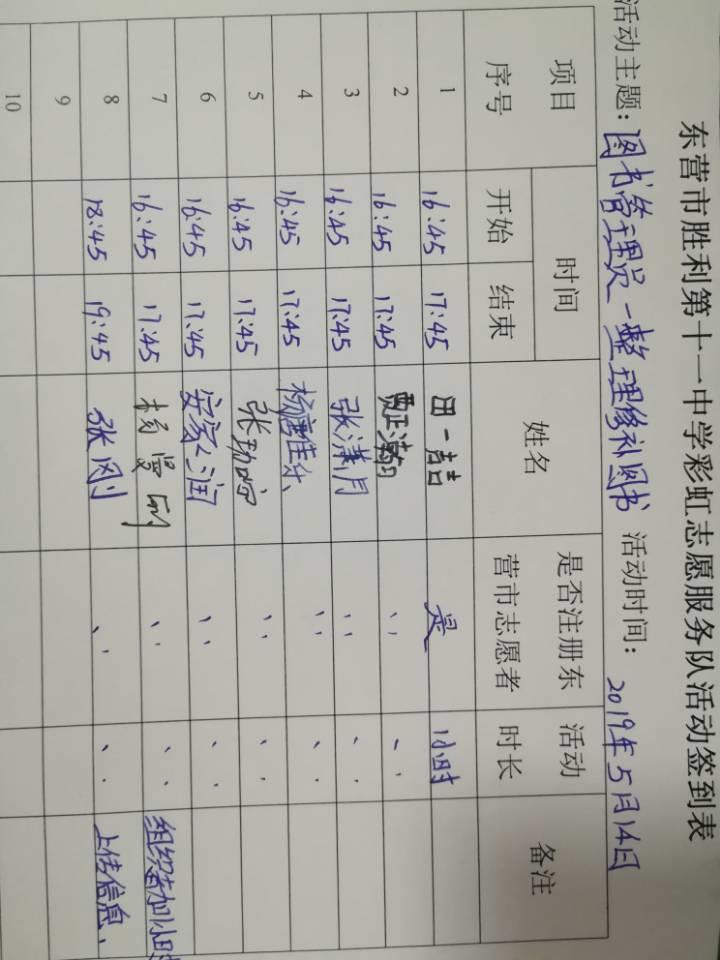 东营市胜利第十一中学彩虹志愿服务队活动签到表
活动主题：图书管理员－整理修补图书 活动时间：2019年5月14日
项目 时间 姓名 是否注册东营市志愿者 活动时长 备注
序号 开始 结束
1 16:45 17:45 田一喆 是 1小时
2 16:45 17:45 〃 〃
3 16:45 17:45 张潇月 〃 〃
4 16:45 17:45 杨唐佳乐 〃 〃
5 16:45 17:45 〃 〃
6 16:45 17:45 安家润 〃 〃
7 16:45 17:45 〃 〃 组织参加1小时
8 18:45 19:45 张刚 〃 〃 上传信息、
9
10